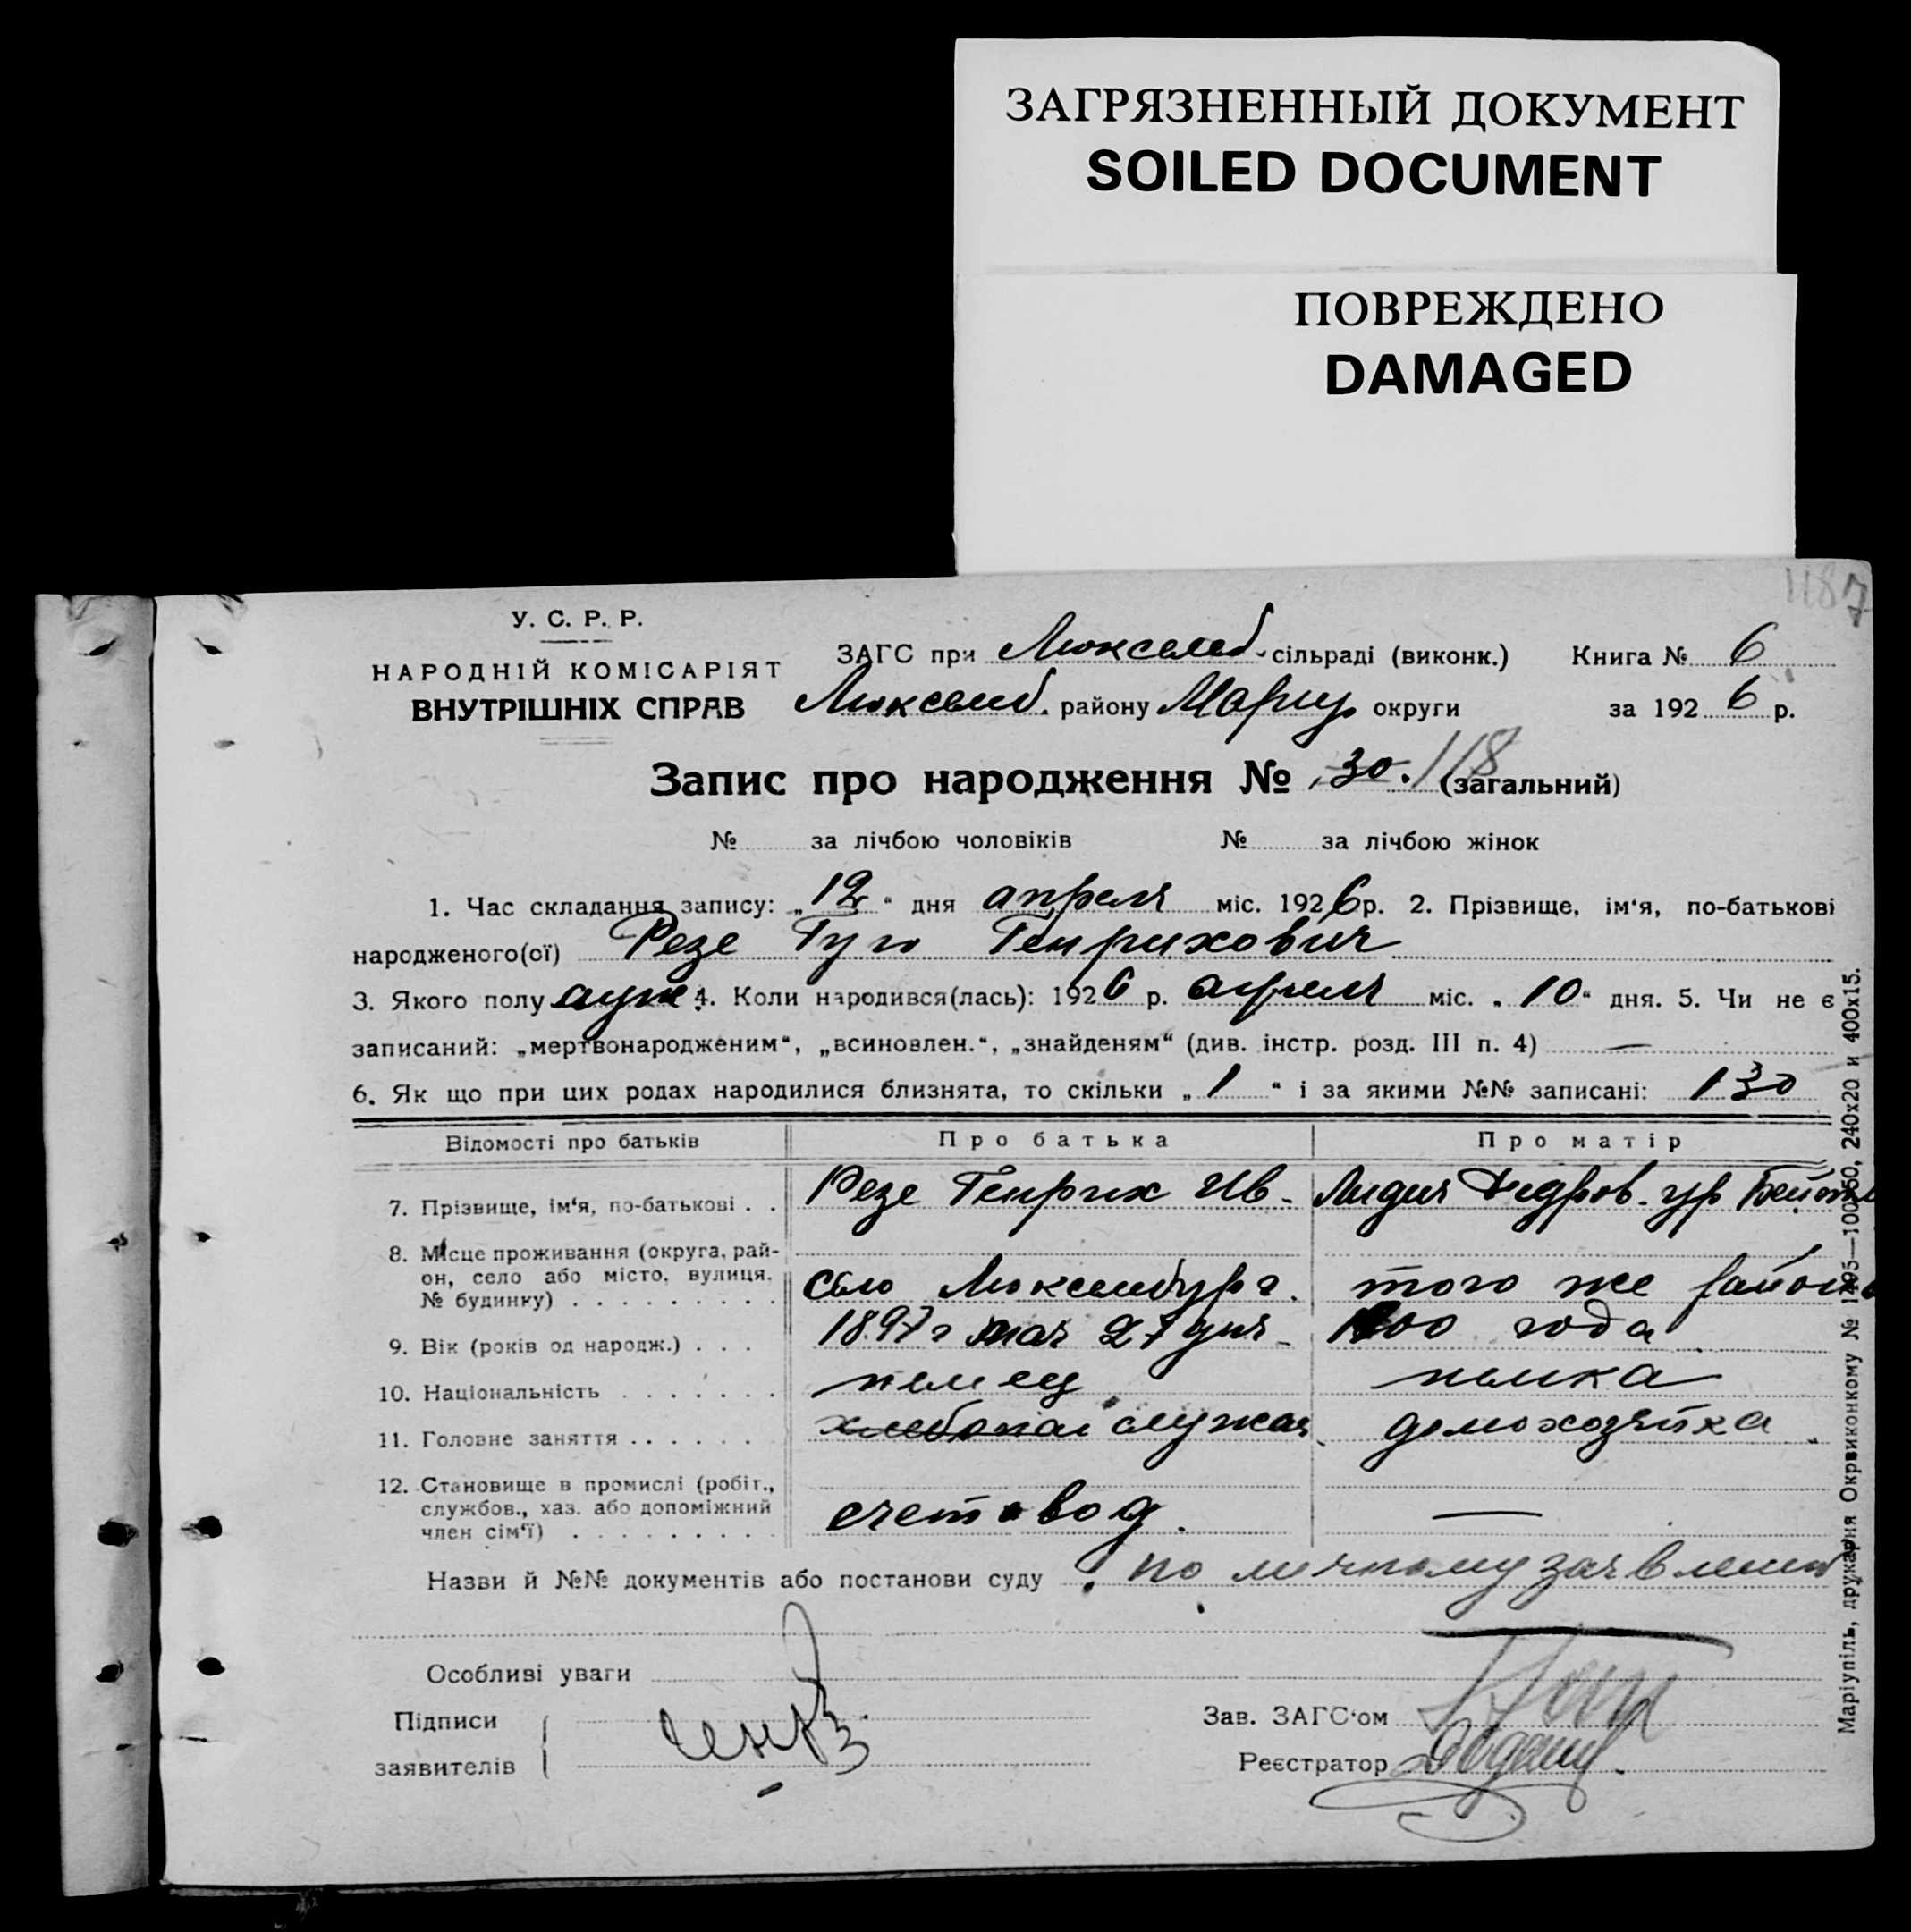 ЗАГРЯЗНЕННЫЙ ДОКУМЕНТ
SOILED DOCUMENT
ПОВРЕЖДЕНО
DAMAGED
1187
У. С. Р. Р.
НАРОДНІЙ КОМІСАРІЯТ
ВНУТРІШНІХ СПРАВ
ЗАГС при Люксемб. сільраді (виконк.) Книга № 6
Люксемб. району Мариуп округи за 1926 р.
Запис про народження № 30. 118 (загальний)
№ за лічбою чоловіків № за лічбою жінок
1. Час складання запису: „12" дня апреля міс. 1926 р. 2. Прізвище, ім'я, по-батькові
народженого(ої) Резе Гуго Генрихович
3. Якого полу муж. 4. Коли народився(лась): 1926 р. апреля міс. „10" дня. 5. Чи не є
записаний: „мертвонародженим", „всиновлен.", „знайденям" (див. інстр. розд. III п. 4) —
6. Як що при цих родах народилися близнята, то скільки „1" і за якими №№ записані: 130
Відомості про батьків Про батька Про матір
7. Прізвище, ім'я, по-батькові . . Резе Генрих Ив. Лидия Федров. ур
8. Місце проживання (округа, рай-
он, село або місто, вулиця, село Люксембург. того же района
№ будинку) . . . . . . . . .
9. Вік (років од народж.) . . . 1897 г мая 27 дня 1900 года
10. Національність . . . . . . . немец немка
11. Головне заняття . . . . . . служащ домохозяйка
12. Становище в промислі (робіт.,
службов., хаз. або допоміжний счетовод. —
член сім'ї) . . . . . . . . .
Назви й №№ документів або постанови суду по личному заявлению
Особливі уваги
Підписи
заявителів
Зав. ЗАГС'ом
Реєстратор
Маріупіль, друкарня Окрвиконкому № 1495—100x50, 240x20 и 400x15.